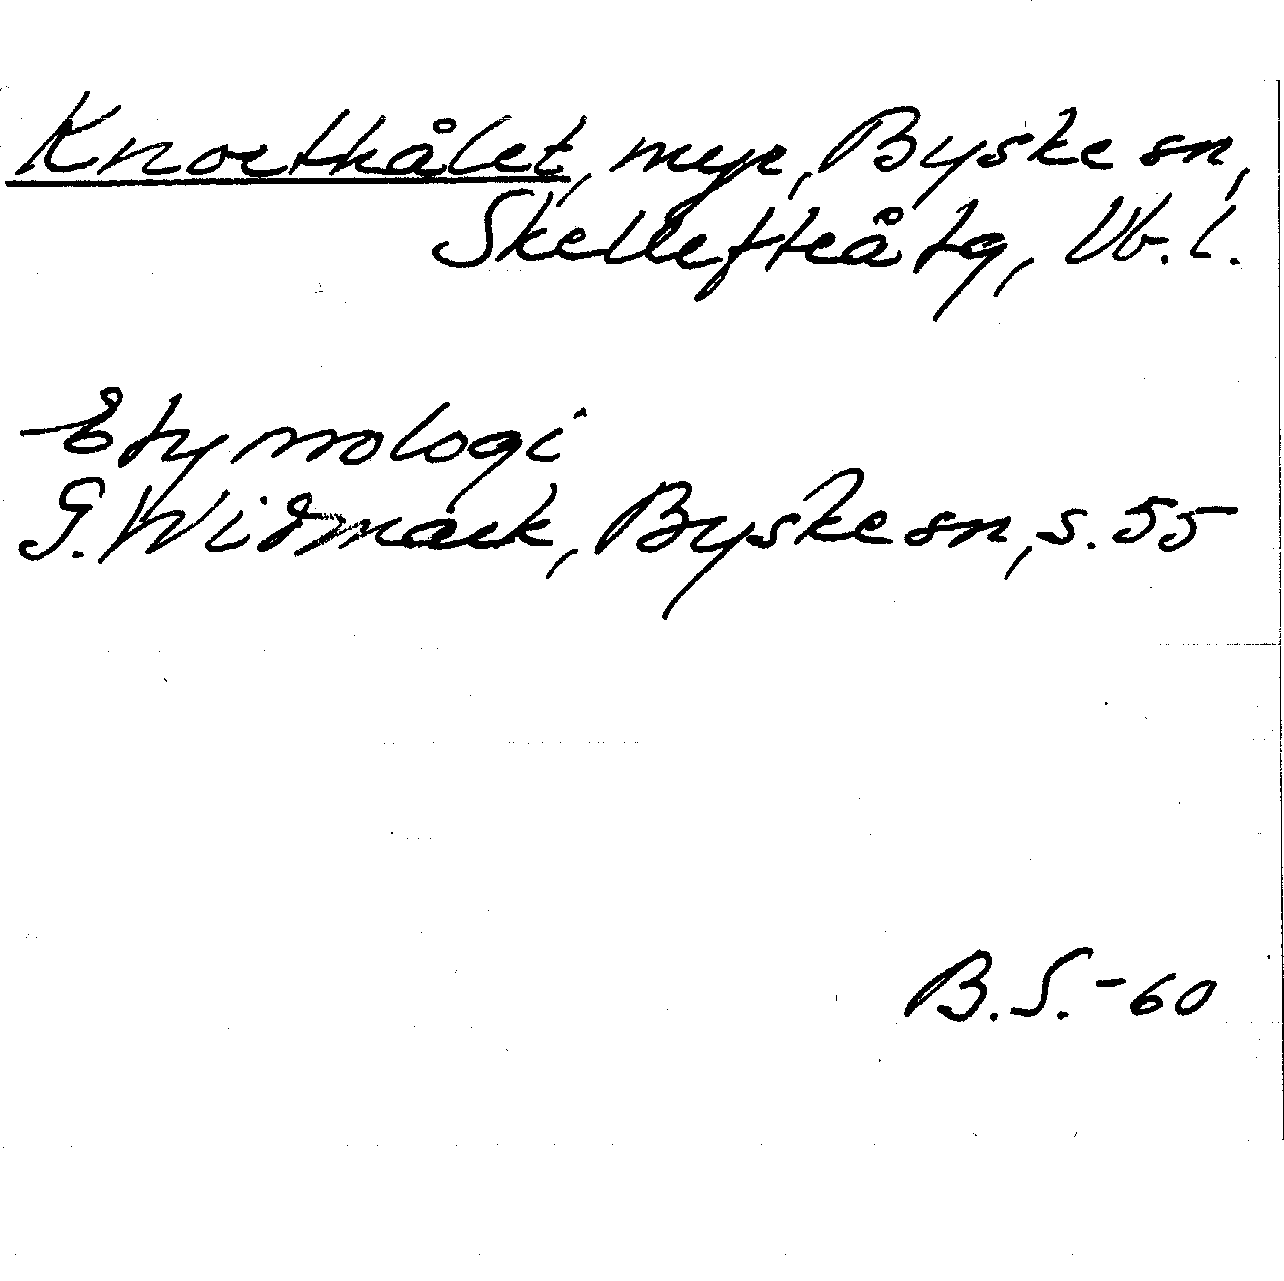 Knorthålet, myr, Byske sn,
Skellefteå tg, Vb. l.
Etymologi
G. Widmark, Byske sn, s. 55
B.S.-60